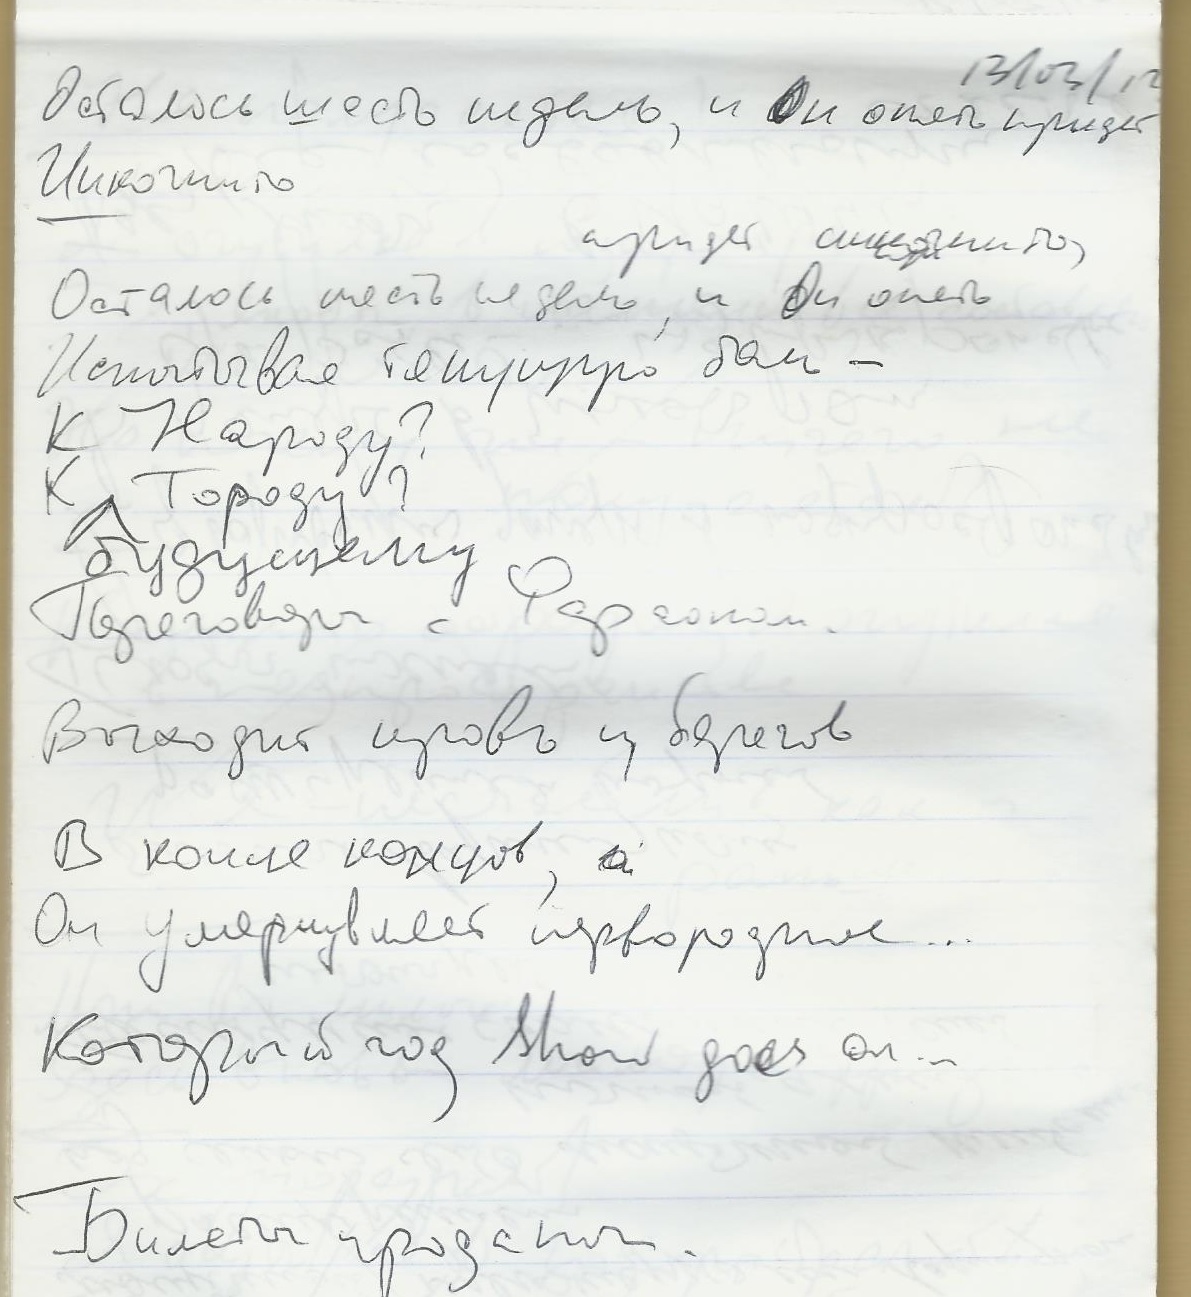 13/03/12
Осталось шесть недель, и Он опять придет
Инкогнито
придет инкогнито,
Осталось шесть недель, и Он опять
Испытывая тянущую боль –
К Народу?
К Городу?
будущему
Переговоры с Фараоном.
Выходит кровь из берегов
В конце концов, а
Он умерщвляет первородные...
Который год Show goes on...
Билеты проданы.